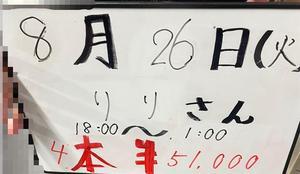 8月26日(火)
りりさん
18:00〜1:00
4本 ¥51,000